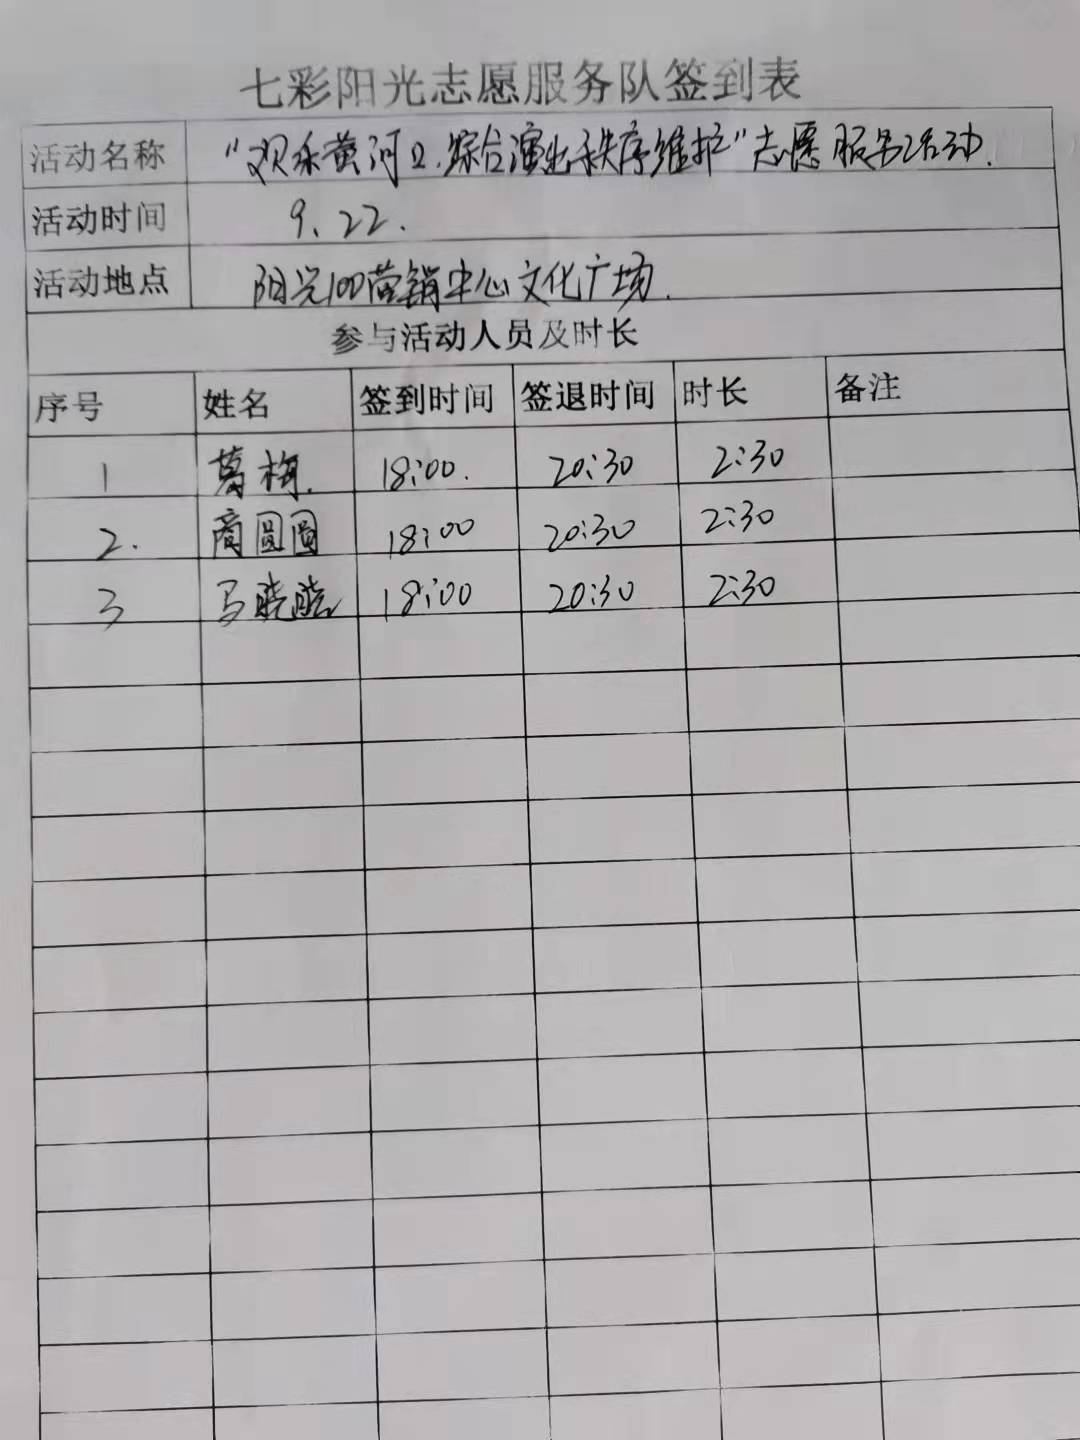 七彩阳光志愿服务队签到表
活动名称 “欢乐黄河口.综合演出秩序维护”志愿服务活动.
活动时间 9.22.
活动地点 阳光100营销中心文化广场.
参与活动人员及时长
序号 姓名 签到时间 签退时间 时长 备注
1 葛梅. 18:00. 20:30 2:30
2. 商圆圆 18:00 20:30 2:30
3 马晓晓 18:00 20:30 2:30